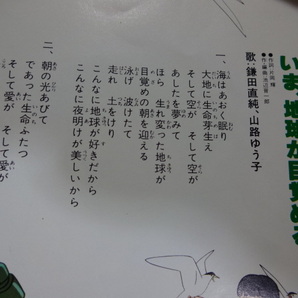 いま地球が目覚める
●作詞／片岡 輝
●作・編曲／池辺晋一郎
歌・鎌田直純、山路ゆう子
一、海はあおく眠り
大地に生命芽生え
そして空が そして空が
あしたを夢みて
ほら 生れ変った地球が
目覚めの朝を迎える
泳げ 波けたて
走れ 土をけり
こんなに地球が好きだから
こんなに夜明けが美しいから
二、朝の光あびて
であった生命ふたつ
そして愛が そして愛が